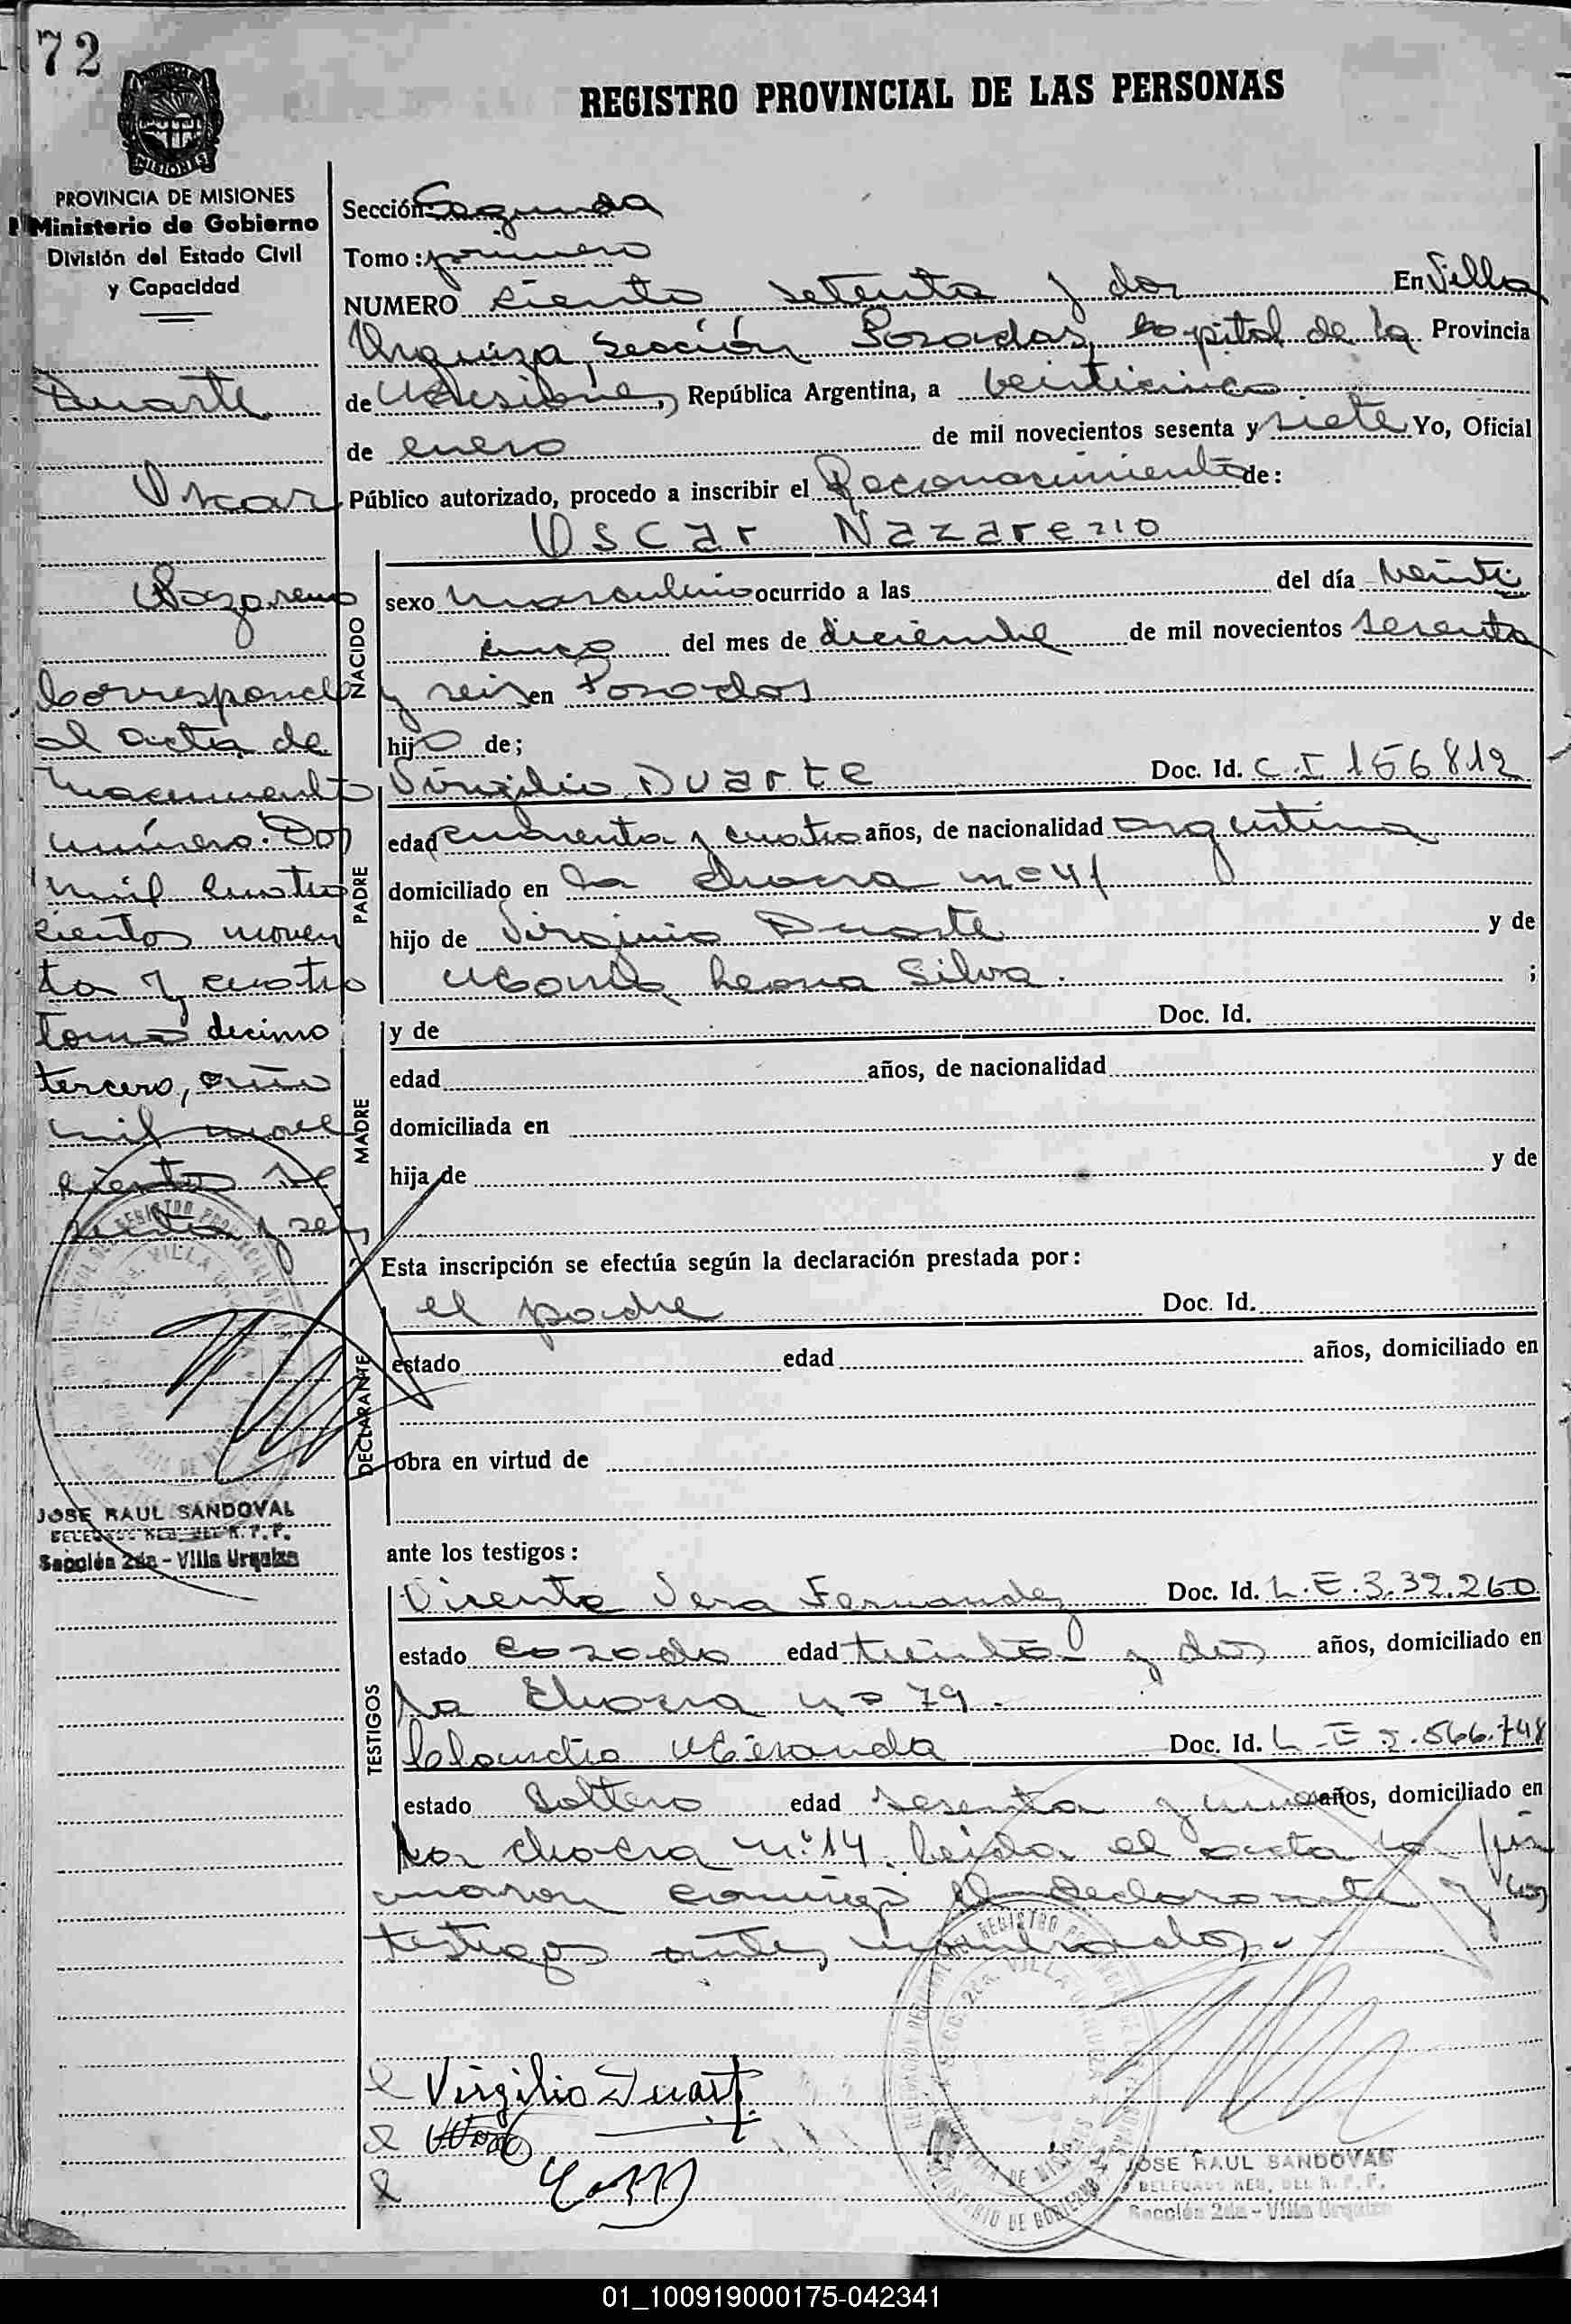 172
REGISTRO PROVINCIAL DE LAS PERSONAS
MISIONES
PROVINCIA DE MISIONES
Ministerio de Gobierno
División del Estado Civil
y Capacidad
Duarte
Oscar
Nazareno
Corresponde
al acta de
nacimiento
número: Dos
mil cuatro
cientos noven
ta y cuatro
tomo decimo
tercero, año
mil nove
cientos se
senta y seis
JOSE RAUL SANDOVAL
DELEGADO REG. DEL R. P. P.
Sección 2da - Villa Urquiza
Sección: Segunda
Tomo: primero
NUMERO ciento setenta y dos En Villa
Urquiza, Sección Posadas, capital de la Provincia
de Misiones, República Argentina, a veinticinco
de enero de mil novecientos sesenta y siete Yo, Oficial
Público autorizado, procedo a inscribir el Reconocimiento de:
Oscar Nazareno
NACIDO
sexo masculino ocurrido a las del día veinti
cinco del mes de diciembre de mil novecientos sesenta
y seis en Posadas
hijo de;
PADRE
Virgilio Duarte Doc. Id. C.I 156812
edad cuarenta y cuatro años, de nacionalidad argentina
domiciliado en la chacra nº 41
hijo de Virginio Duarte y de
María Leona Silva. ;
MADRE
y de Doc. Id.
edad años, de nacionalidad
domiciliada en
hija de y de
Esta inscripción se efectúa según la declaración prestada por:
DECLARANTE
el padre Doc. Id.
estado edad años, domiciliado en
obra en virtud de
ante los testigos:
TESTIGOS
Vicente Vera Fernandez Doc. Id. L.E.3.32.260
estado casado edad treinta y dos años, domiciliado en
la Chacra nº 79.
Claudio Miranda Doc. Id. L.E 5.566.748
estado Soltero edad sesenta y uno años, domiciliado en
la chacra nº 14. Leida el acta la fir
maron conmigo el declarante y los
testigos antes nombrados.-
Virgilio Duarte
JOSE RAUL SANDOVAL
DELEGADO REG. DEL R. P. P.
Sección 2da - Villa Urquiza
01_100919000175-042341